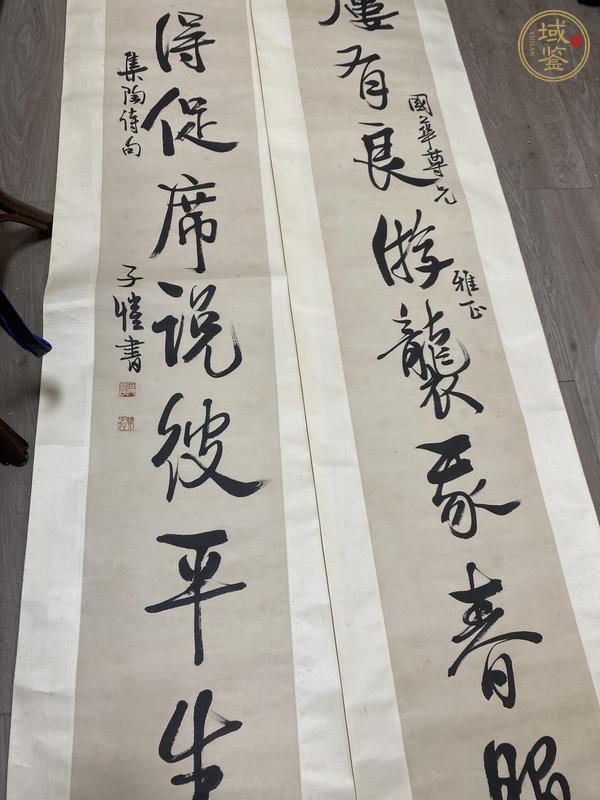 屢有良游襲我春服
國華尊兄
雅正
得促席说彼平生
集陶詩句
子愷書
域鉴
YUJIAN